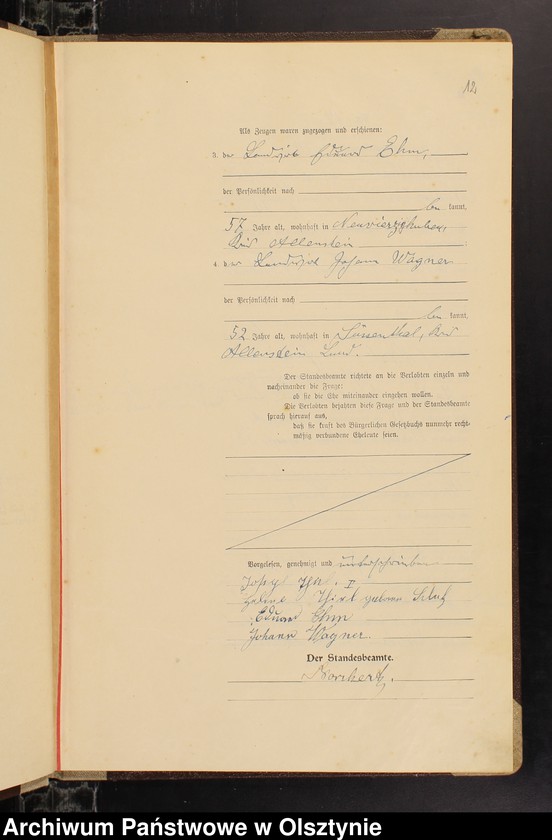 12.
Als Zeugen waren zugezogen und erschienen:
3. der Landwirt Eduard Ehm,
der Persönlichkeit nach
be kannt,
57 Jahre alt, wohnhaft in Neuvierzighuben,
Kreis Allenstein
4. der Landwirt Johann Wagner
der Persönlichkeit nach
be kannt,
52 Jahre alt, wohnhaft in Süssenthal, Kreis
Allenstein Land.
Der Standesbeamte richtete an die Verlobten einzeln und
nacheinander die Frage:
ob sie die Ehe miteinander eingehen wollen.
Die Verlobten bejahten diese Frage und der Standesbeamte
sprach hierauf aus,
daß sie kraft des Bürgerlichen Gesetzbuchs nunmehr recht-
mäßig verbundene Eheleute seien.
Vorgelesen, genehmigt und unterschrieben
Josef
geborene
Eduard Ehm
Johann Wagner.
Der Standesbeamte.
Archiwum Państwowe w Olsztynie